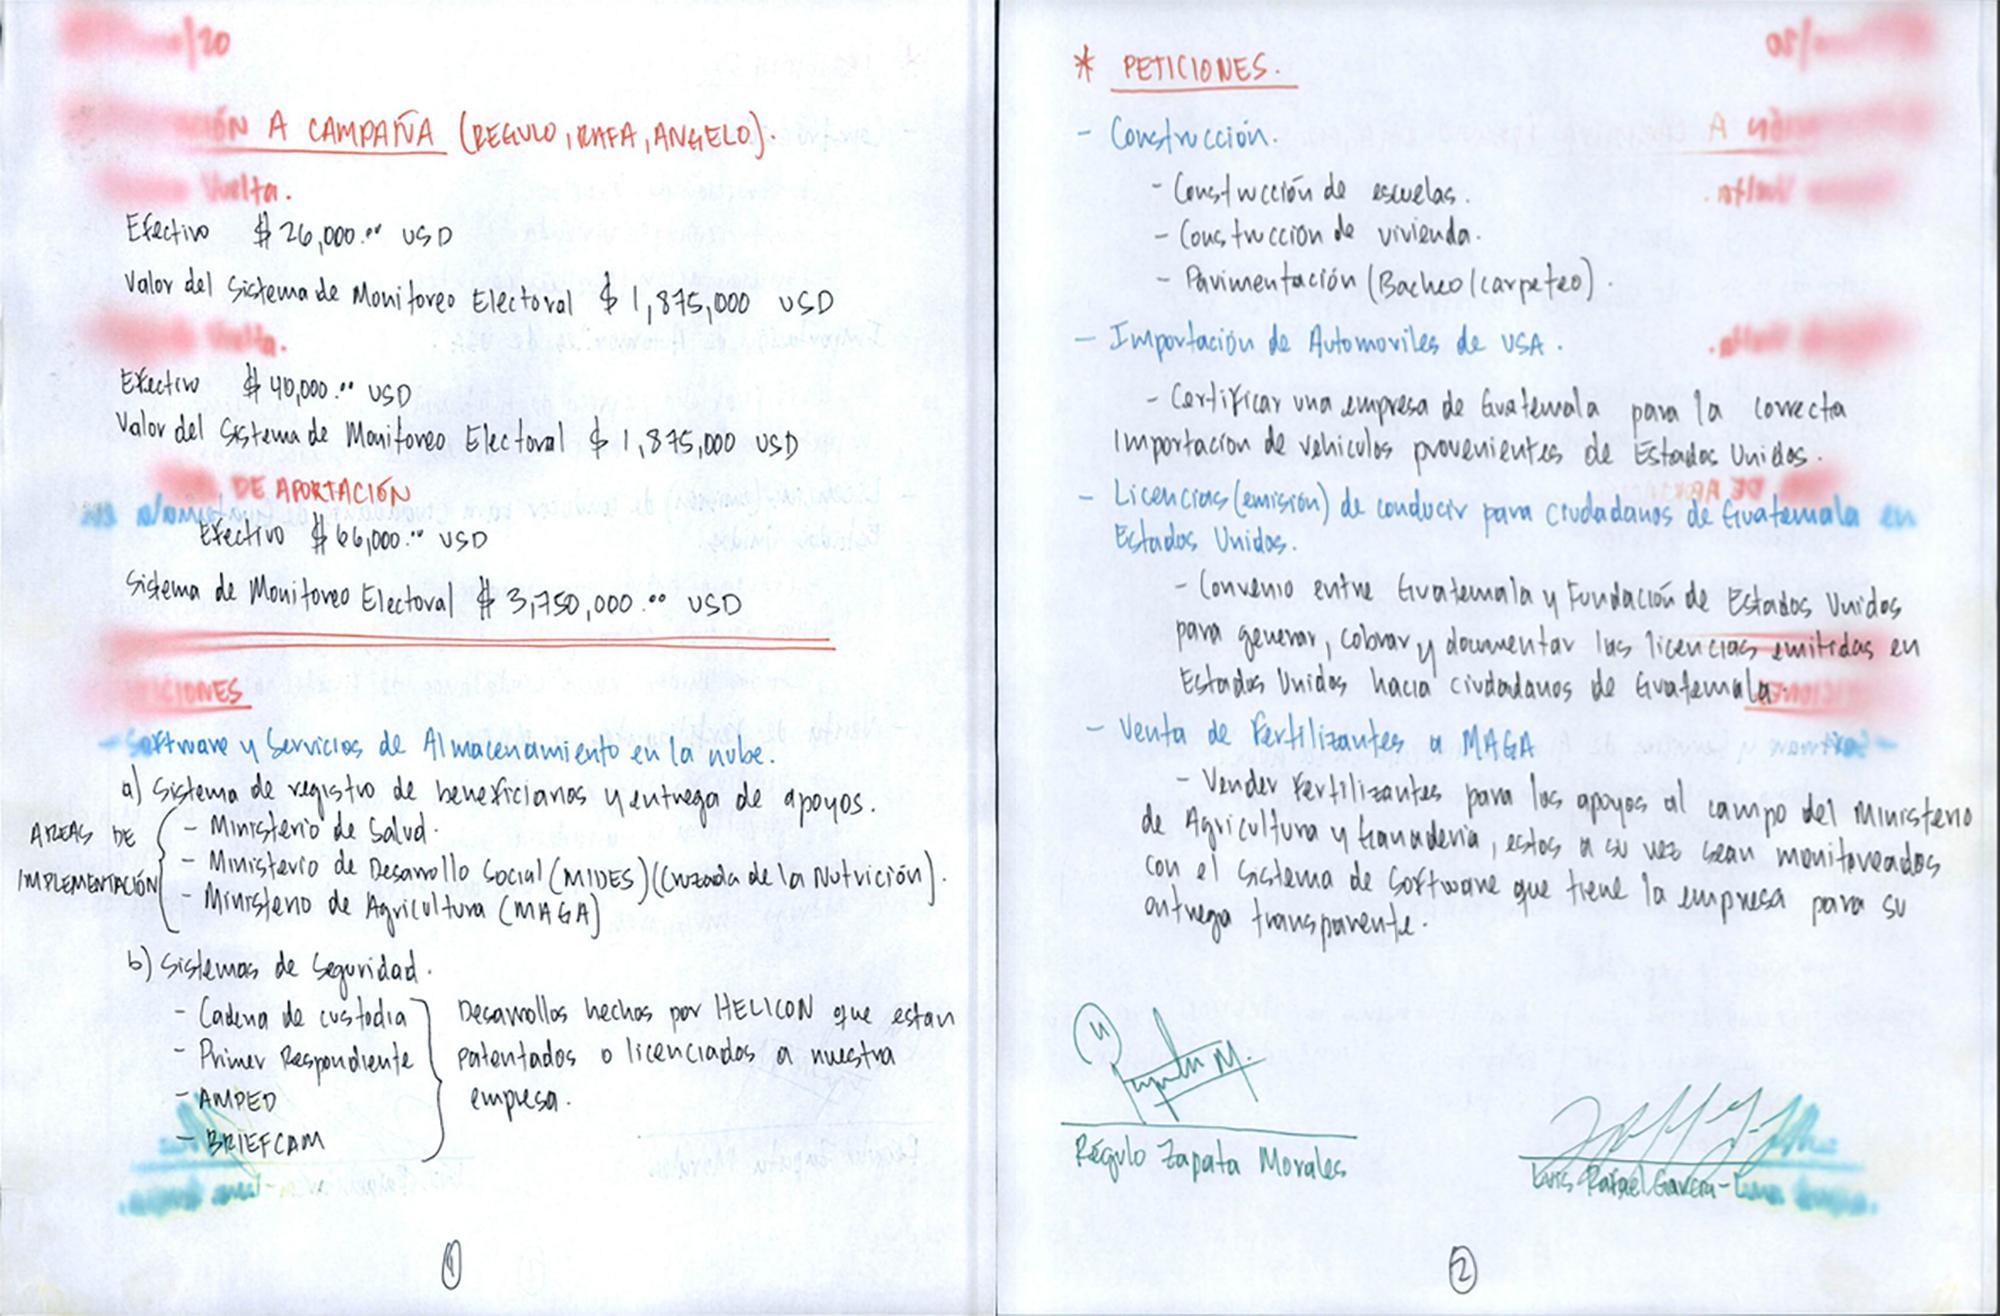 /20
IÓN A CAMPAÑA (REGULO, RAFA, ANGELO).
Vuelta.
Efectivo $ 26,000.⁰⁰ USD
Valor del Sistema de Monitoreo Electoral $ 1,875,000 USD
Vuelta.
Efectivo $ 40,000.⁰⁰ USD
Valor del Sistema de Monitoreo Electoral $ 1,875,000 USD
DE APORTACIÓN
Efectivo $ 66,000.⁰⁰ USD
Sistema de Monitoreo Electoral $ 3,750,000.⁰⁰ USD
ICIONES
- Software y Servicios de Almacenamiento en la nube.
a) Sistema de registro de beneficiarios y entrega de apoyos.
AREAS DE IMPLEMENTACIÓN
- Ministerio de Salud.
- Ministerio de Desarrollo Social (MIDES) (Cruzada de la Nutrición).
- Ministerio de Agricultura (MAGA)
b) Sistemas de Seguridad.
- Cadena de custodia
- Primer Respondiente
- AMPED
- BRIEFCAM
Desarrollos hechos por HELICON que estan
patentados o licenciados a nuestra
empresa.
1
* PETICIONES.
- Construcción.
- Construcción de escuelas.
- Construcción de vivienda.
- Pavimentación (Bacheo/carpeteo).
- Importación de Automoviles de USA.
- Certificar una empresa de Guatemala para la correcta
importación de vehiculos provenientes de Estados Unidos.
- Licencias (emisión) de conducir para ciudadanos de Guatemala en
Estados Unidos.
- Convenio entre Guatemala y Fundación de Estados Unidos
para generar, cobrar y documentar las licencias emitidas en
Estados Unidos hacia ciudadanos de Guatemala.
- Venta de Fertilizantes a MAGA
- Vender Fertilizantes para los apoyos al campo del Ministerio
de Agricultura y Ganadería, estos a su vez sean monitoreados
con el sistema de software que tiene la empresa para su
entrega transparente.
Régulo Zapata Morales
Luis Rafael García-
2